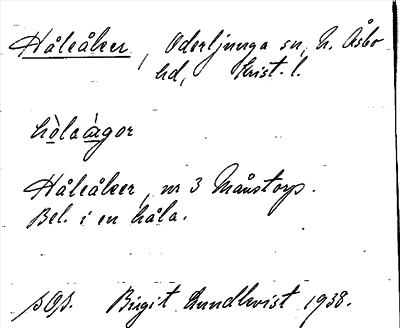 Håleåker, Oderljunga sn, N. Åsbo
hd, Krist. l.
hòlaàgor
Håleåker, nr 3 Månstorp.
Bel. i en håla.
Birgit Lundkvist 1938.